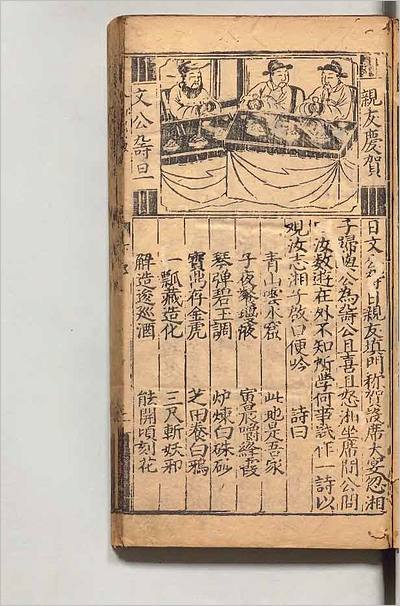 親友慶賀
文公壽旦
日文公壽日親友門称賀設席大宴忽湘
子歸公為壽公且喜且怒湘坐席間公問
汝遊在外不知所學何事試作一詩以
观汝志湘子啟口便吟 詩曰
青山雲水窟 此地是吾家
子夜飡瓊液 寅晨嚼絳霞
琴弹碧玉調 炉煉白硃砂
寶鼎存金虎 芝田养白鴉
一瓢藏造化 三尺斬妖邪
解造逡廵酒 能開頃刻花